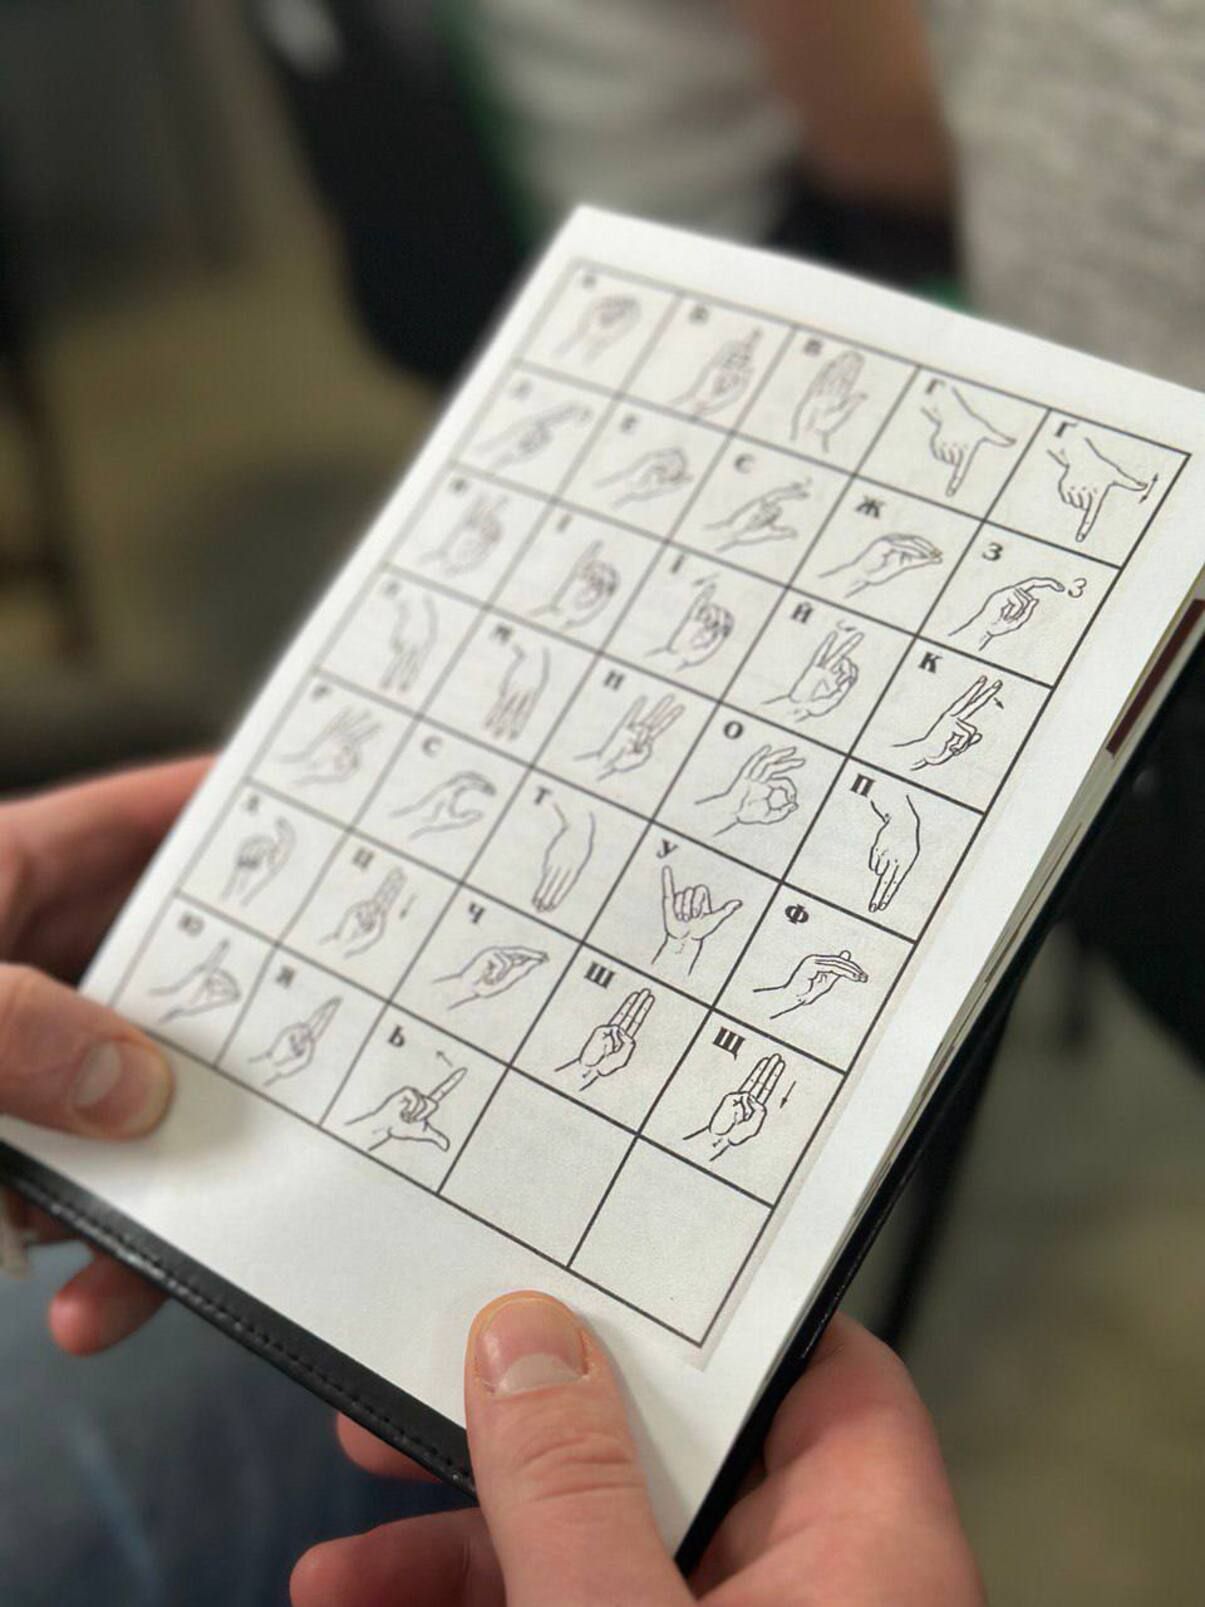 А Б В Г Ґ
Д Е Є Ж З
И І Ї Й К
Л М Н О П
Р С Т У Ф
Х Ц Ч Ш Щ
Ю Я Ь